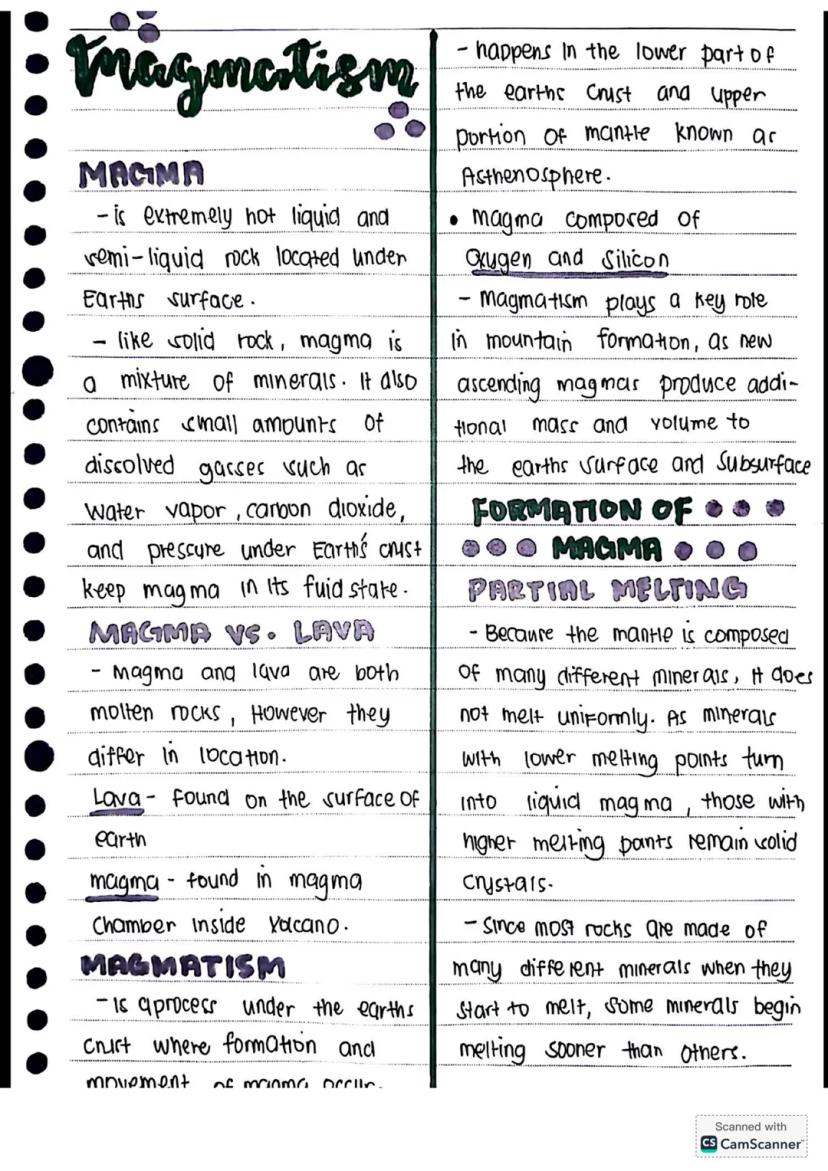 Magmatism
MAGMA
- is extremely hot liquid and
semi-liquid rock located under
Earths surface.
- like solid rock, magma is
a mixture of minerals. It also
contains small amounts of
dissolved gasses such as
water vapor, carbon dioxide,
and pressure under Earth's crust
keep magma in its fuid state.
MAGMA VS. LAVA
- Magma and lava are both
molten rocks, However they
differ in location.
Lava - found on the surface of
earth
magma - found in magma
Chamber inside Volcano.
MAGMATISM
- Is a process under the earths
crust where formation and
movement of magma occur.
- happens in the lower part of
the earths crust and upper
portion of mantle known as
Asthenosphere.
• magma composed of
Oxygen and Silicon
- Magmatism plays a key role
in mountain formation, as new
ascending magmas produce addi-
tional mass and volume to
the earths surface and Subsurface
FORMATION OF
MAGMA
PARTIAL MELTING
- Because the mantle is composed
of many different minerals, it does
not melt uniformly. As minerals
with lower melting points turn
into liquid magma, those with
higher melting points remain solid
crystals.
- Since most rocks are made of
many different minerals when they
start to melt, some minerals begin
melting sooner than others.
Scanned with
CS CamScanner